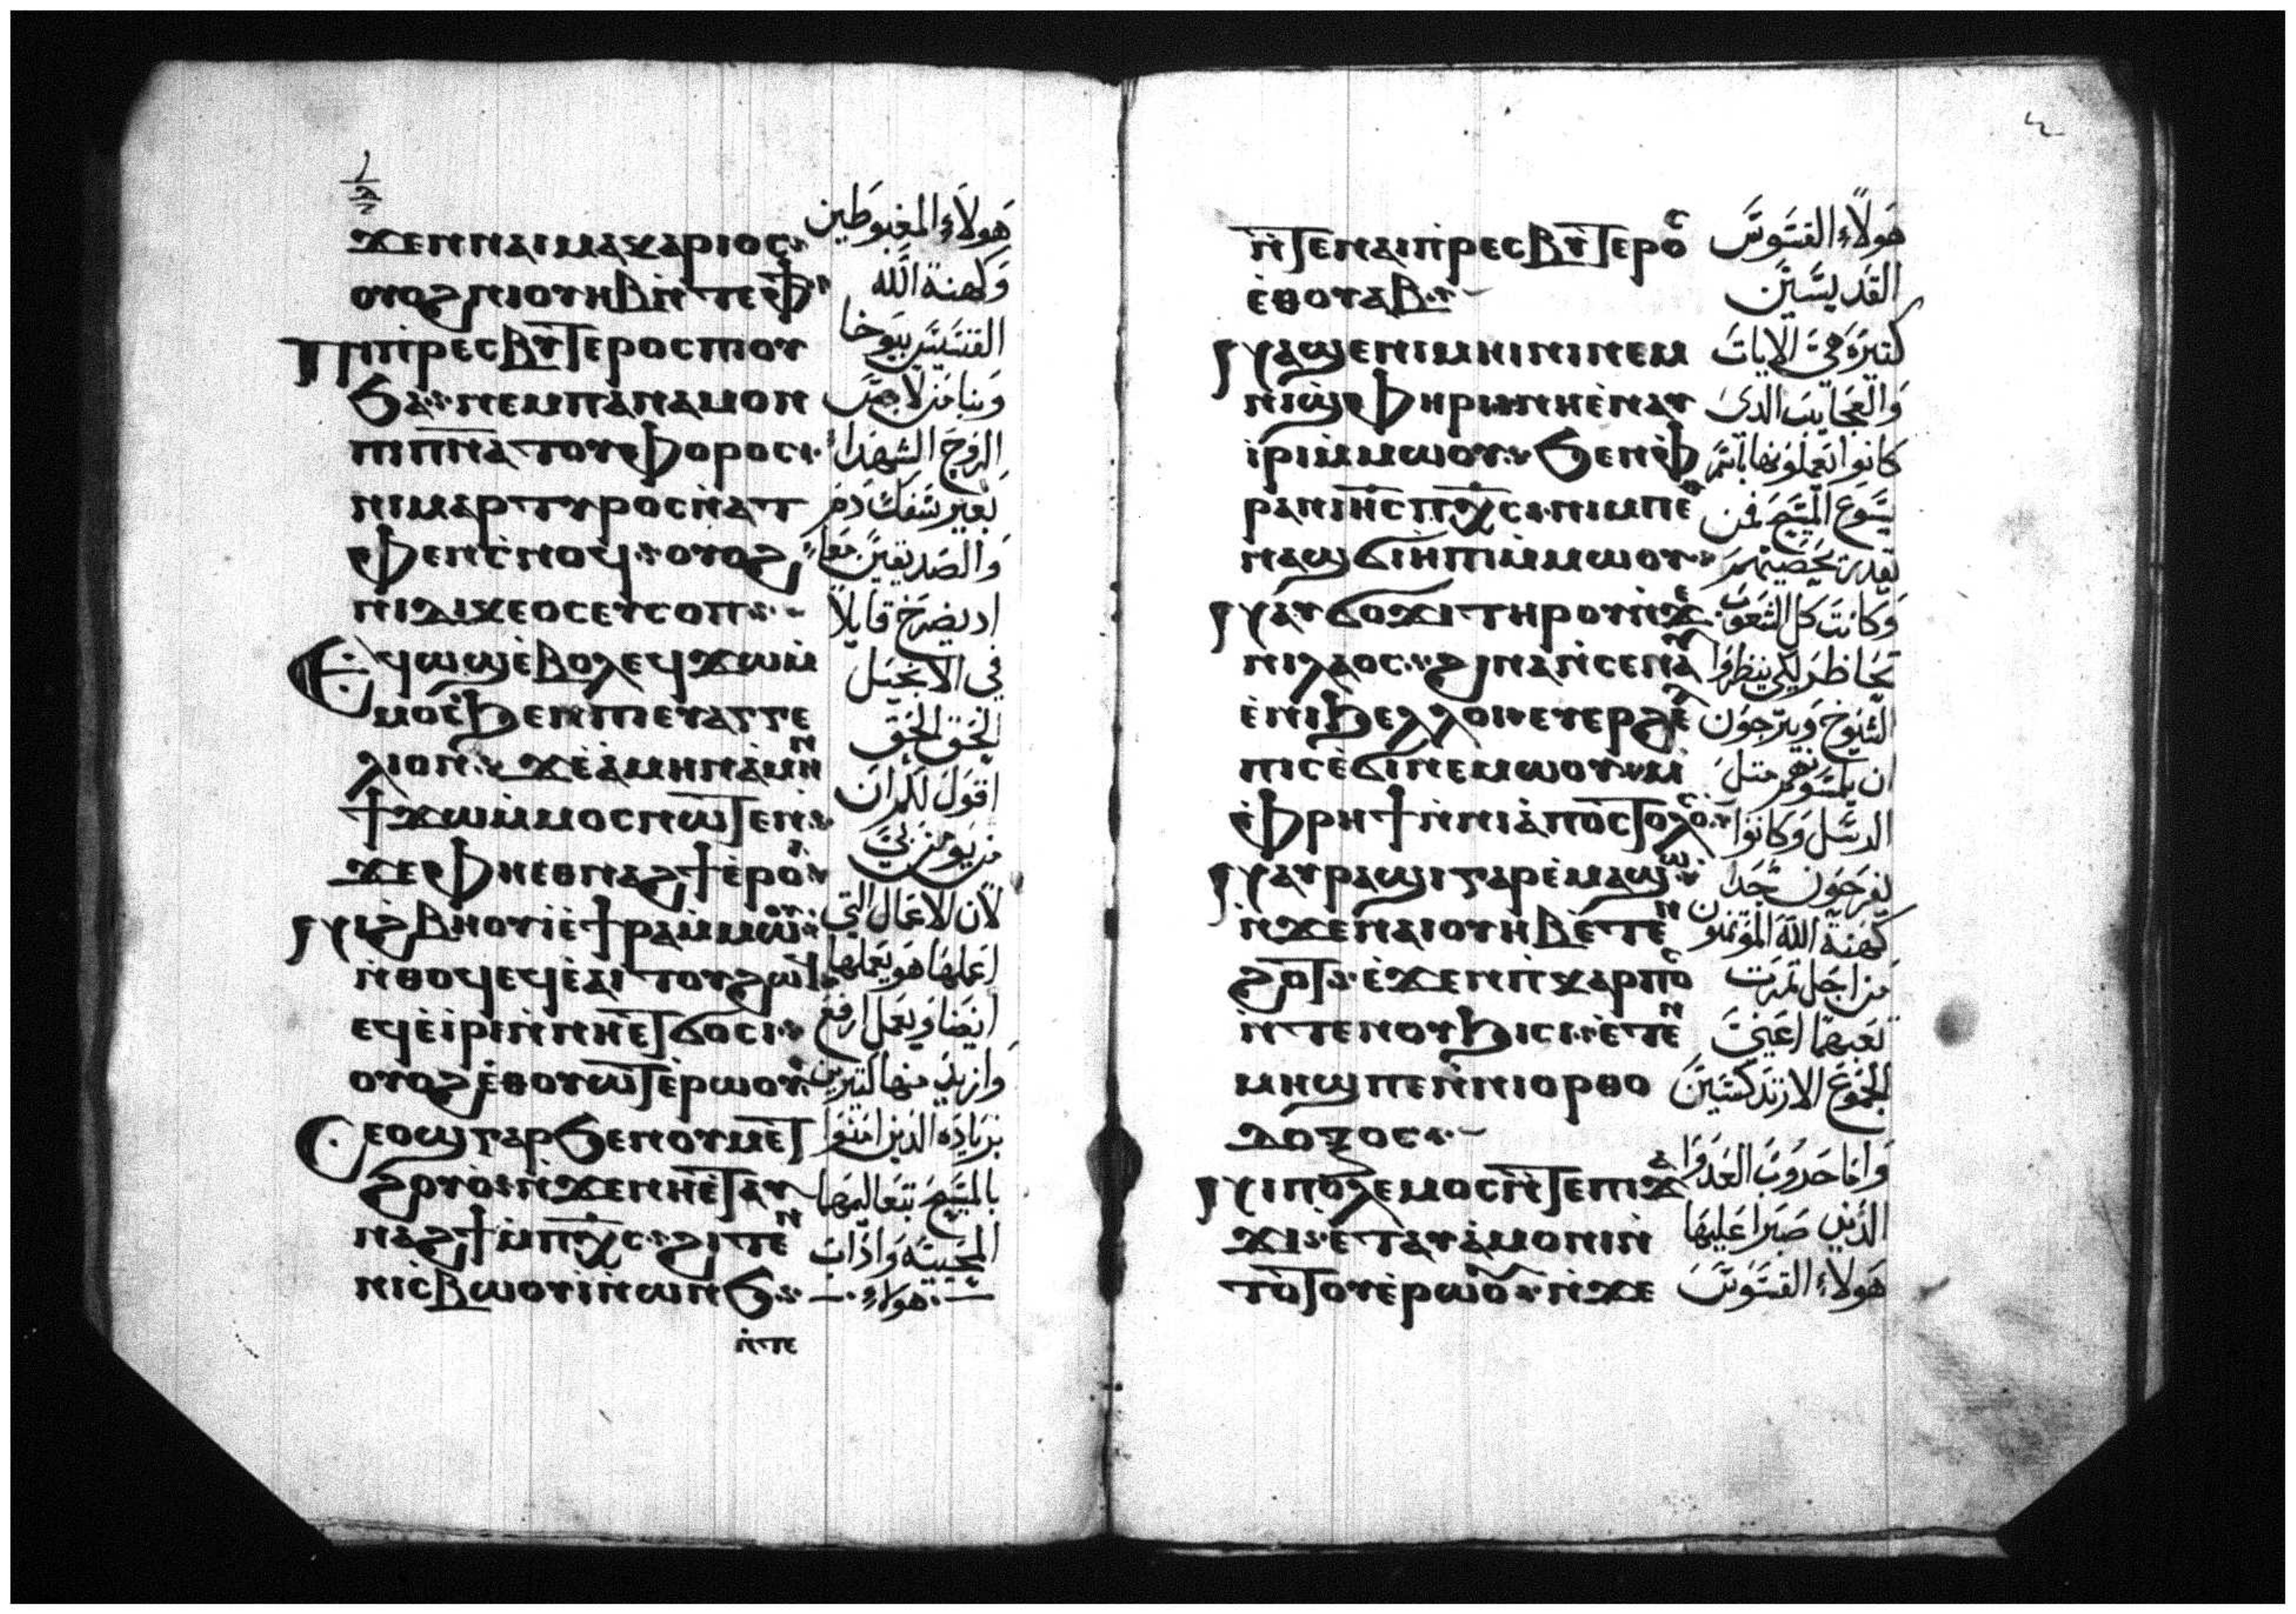 ϫⲉⲛⲛⲁⲓⲙⲁⲕⲁⲣⲓⲟⲥ
هَولَاءِ المغبوطين
ⲟⲩⲟϩⲛⲓⲟⲩⲏⲃⲛ̀ⲧⲉⲫϯ
وَكهنة اللَّه
ⲡⲓⲡⲣⲉⲥⲃⲩⲧⲉⲣⲟⲥⲡⲓⲟⲩ
ϧⲁ ⲛⲉⲙⲡⲁⲛⲁⲙⲟⲛ
ⲡⲓⲡ̅ⲛ̅ⲁ̅ⲧⲟⲩⲫⲟⲣⲟⲥ
الشهدا
ⲛⲓⲙⲁⲣⲧⲩⲣⲟⲥⲛ̀ⲁⲧ
بغير سَفك دم
ⲫⲉⲛⲥ̀ⲛⲟϥ ⲟⲩⲟϩ
وَالصَديقين معاً
ⲛⲓⲇⲓⲕⲉⲟⲥⲉⲩⲥⲟⲡ
اد يصرَخ قايلاً
ⲉϥⲱϣⲉ̀ⲃⲟⲗⲉϥϫⲱⲙ̀
في الانجيَل
ⲙⲟⲥϧⲉⲛⲡⲓⲉⲩⲁⲅⲅⲉ
الحَق الحَق
ⲗⲓⲟⲛ ϫⲉⲁ̀ⲙⲏⲛⲁ̀ⲙⲏⲛ
اقوَل لكم ان
ϯϫⲱⲙ̀ⲙⲟⲥⲛⲱⲧⲉⲛ
من يَومن بيَ
ϫⲉⲫⲏⲉⲑⲛⲁϩϯⲉ̀ⲣⲟⲓ
لأن الاعمال التي
ⲛⲓϩⲃⲏⲟⲩⲓⲉ̀ϯⲣⲁⲙ̀ⲙⲱⲟⲩ
اعملهَا هو يَعملهَا
ⲛ̀ⲑⲟϥⲉϥⲉ̀ⲁⲓⲧⲟⲩϩⲱϥ
ايَضا وَيعمل ارفع
ⲉϥⲉ̀ⲓⲣⲓⲛ̀ⲛⲏⲉⲧϭⲟⲥⲓ
ⲟⲩⲟϩⲉ̀ⲑⲟⲩⲱⲧⲉ̀ⲣⲱⲟⲩ
بزيادَه الدين امنوَا
ⲥⲉⲟϣⲅⲁⲣϧⲉⲛⲟⲩⲙⲉⲧ
بالمسَيح بتعاليمهَا
ϩⲟⲩⲟ̀ⲛ̀ϫⲉⲛⲏⲉⲧⲁⲩ
ⲛⲁϩϯⲙ̀ⲡ̅ⲭ̅ⲥ̅ ϩⲓⲧⲉⲛ
ⲛⲓⲥ̀ⲃⲱⲟⲩⲓⲛ̀ⲱⲛϧ
هولاءِ
ⲛ̀ⲧⲉ
ⲛ̀ⲧⲉⲛⲁⲓⲡⲣⲉⲥⲃⲩⲧⲉⲣⲟⲥ
هَولاَءِ القسَوسَ
ⲉ̀ⲑⲟⲩⲁⲃ
القَديسَيَن
ⲛⲁϣⲉⲛⲓⲙⲏⲓⲛⲓⲛⲉⲙ
كتيرَه هيَ الاياتَ
ⲛⲓϣⲫⲏⲣⲓⲛⲏⲉ̀ⲛⲁⲩ
وَالعجَايبَ الدى
ⲓⲣⲓⲙ̀ⲙⲱⲟⲩ ϧⲉⲛⲫ̀
كانوا يَعملوَنها باسَم
ⲣⲁⲛⲓ̅ⲏ̅ⲥ̅ⲡ̅ⲭ̅ⲥ̅ ⲛⲓⲙⲡⲉⲑ
يسَوع المسَيح فمن
ⲛⲁϣϭⲓⲏⲡⲓⲙ̀ⲙⲱⲟⲩ
يَقدر يحَصيَهم
ⲛⲁⲩϭⲟϫⲓⲧⲏⲣⲟⲩⲛ̀ϫⲉ
وَكانتَ كل الشعَوب
ⲛⲓⲗⲁⲟⲥ ϩⲓⲛⲁⲛ̀ⲥⲉⲛⲁⲩ
تحَاظر لكي ينظروَا
ⲉ̀ⲛⲓϧⲉⲗⲗⲟⲓ ⲉⲩⲉⲣϩⲉⲗ
الشيوخ وَيترَجوَن
ⲡⲓⲥⲉ̀ϭⲓⲛⲉⲙⲱⲟⲩ ⲙ̀
ان يلمسَوهم متلَ
ⲫ̀ⲣⲏϯⲛ̀ⲛⲓⲁ̀ⲡⲟⲥⲧⲟⲗⲟⲥ
الرسَل وَكانوَا
ⲛⲁⲩⲣⲁϣⲓⲅⲁⲣⲉ̀ⲙⲁϣⲱ
يفرَحوَن جدَا
ⲛ̀ϫⲉⲛⲁⲓⲟⲩⲏⲃⲉ̀ⲧⲉⲛ
كهَنة اللَّه الموَتمنون
ϩⲟⲧ ⲉ̀ϫⲉⲛⲡⲓⲕⲁⲣⲡⲟⲥ
من اجَل تمرَت
ⲛ̀ⲧⲉⲛⲟⲩϧⲓⲥⲓ ⲉ̀ⲧⲉⲛ
تعَبهما اعَنيَ
ⲙⲏϣⲡⲉⲛ̀ⲛⲓⲟⲣⲑⲟ
الجَموَع الارتدَكسَيَين
ⲇⲟⲝⲟⲥ
ⲛⲓⲡⲟⲗⲉⲙⲟⲥⲛ̀ⲧⲉⲡⲓϫⲁ
وَامَا حَروَبَ العَدوَا
ϫⲓ ⲉ̀ⲧⲁⲩⲁ̀ⲙⲟⲛⲓⲛ̀
الدَين صَبرَا عَليهَا
ⲧⲟⲧⲟⲩⲉ̀ⲣⲱⲟⲩ ⲛ̀ϫⲉ
هَولاءِ القسَوَسَ